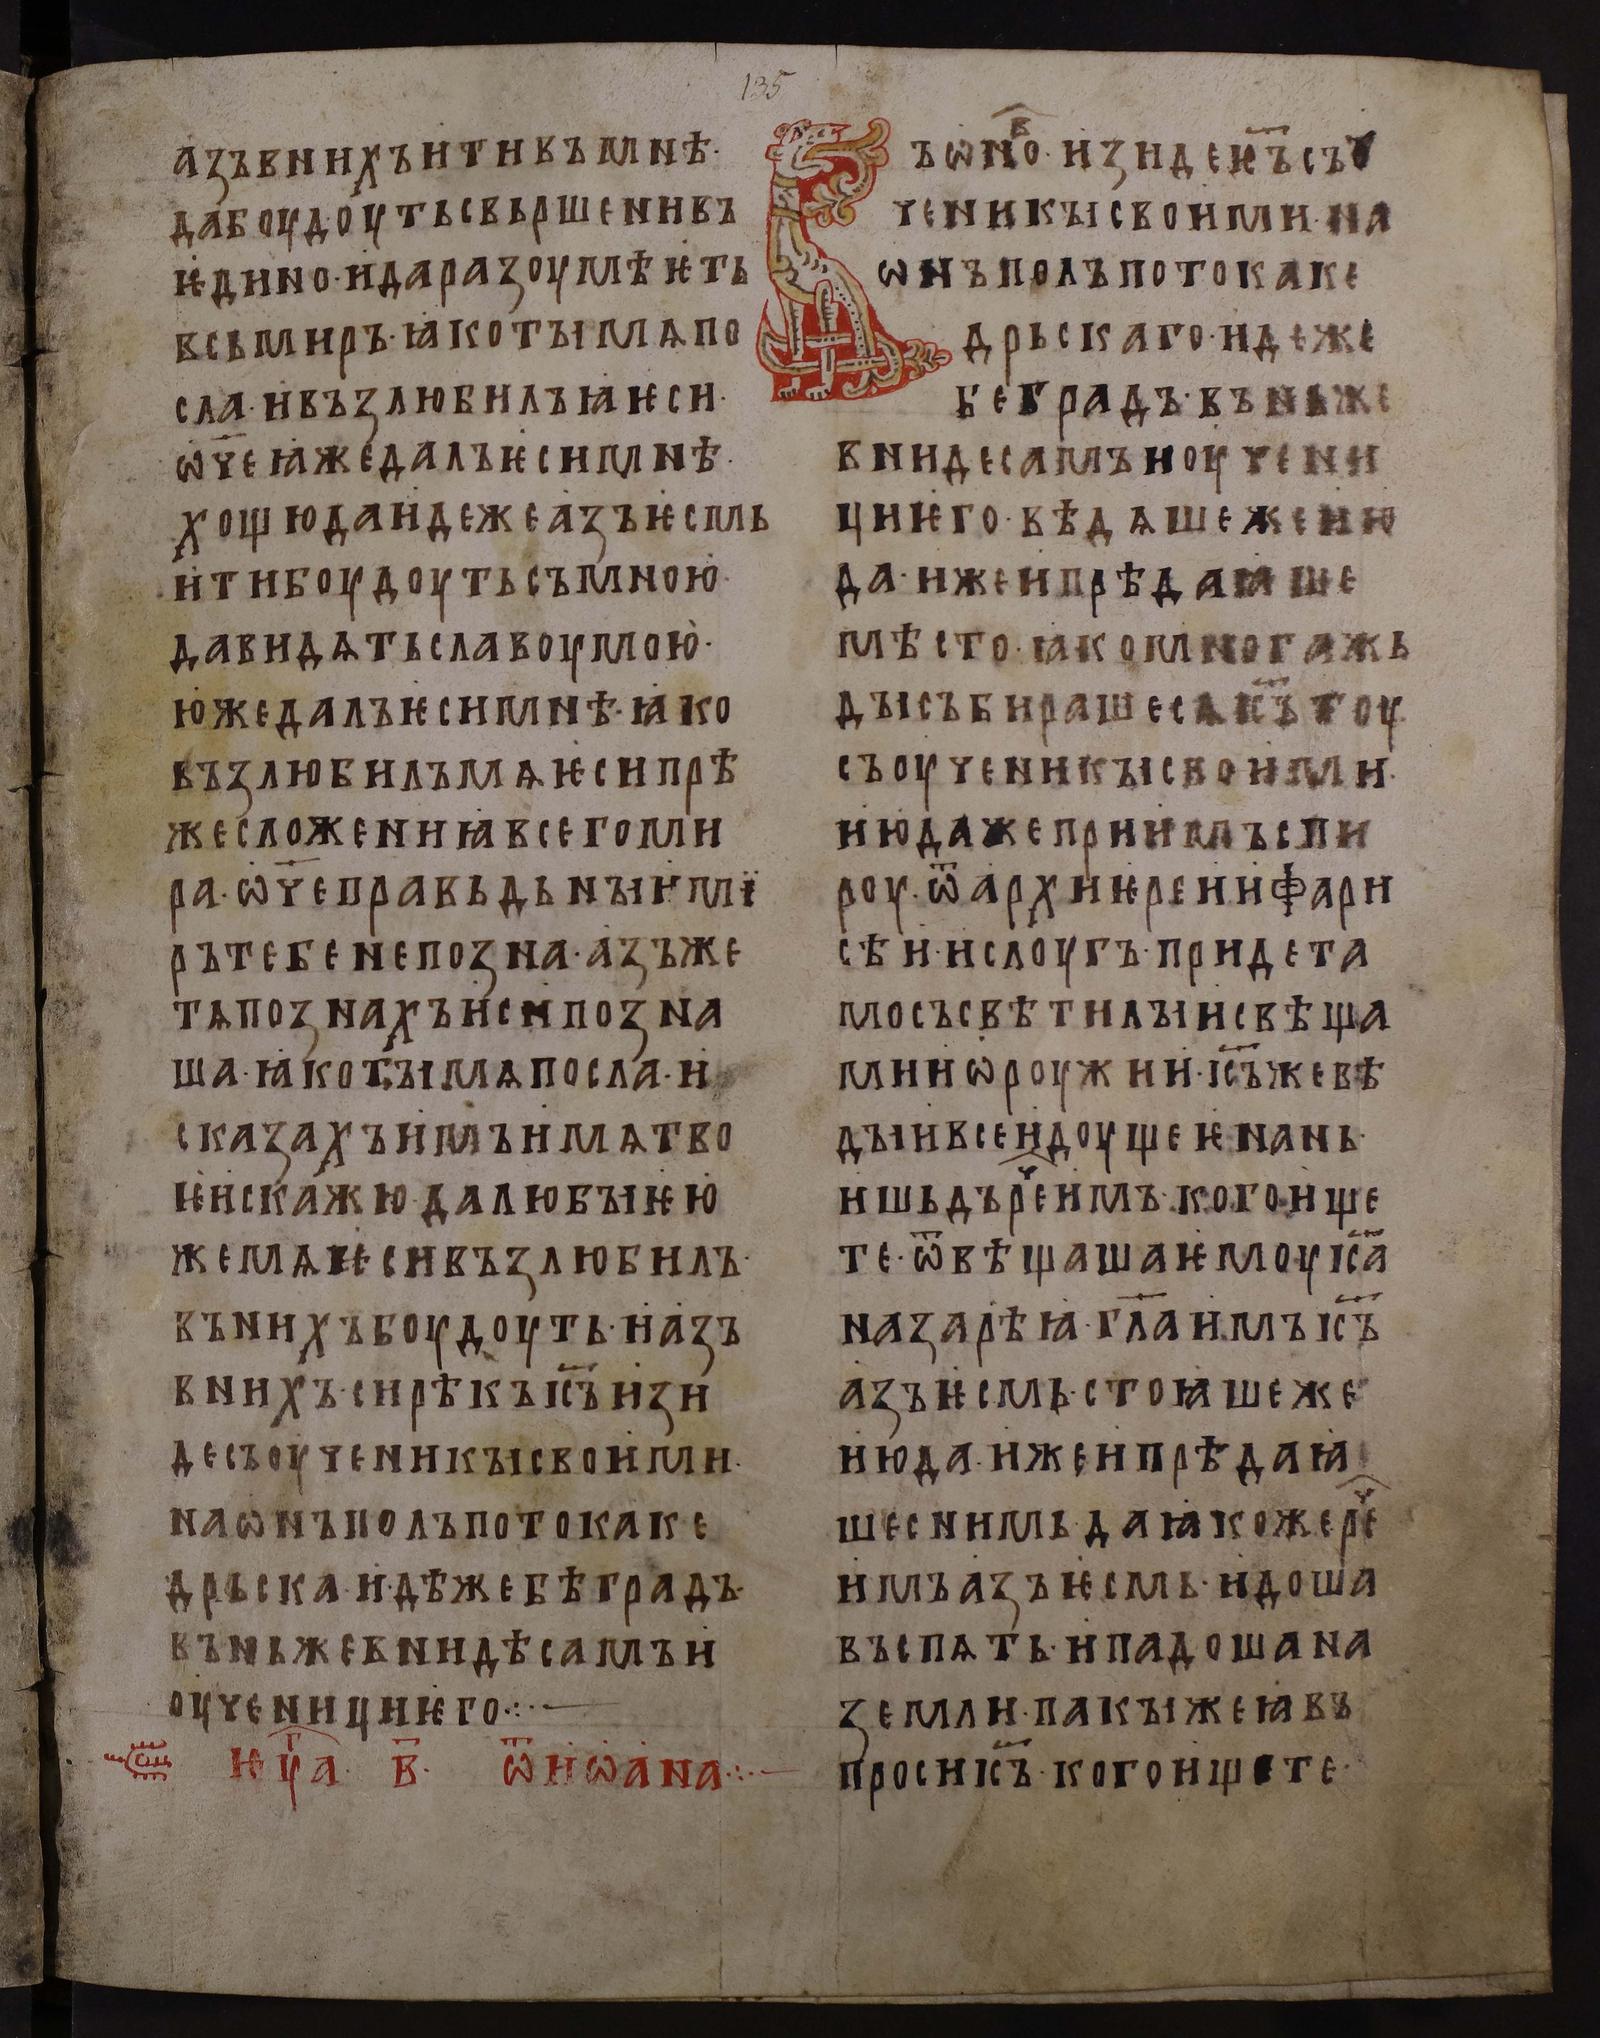 135
азъвнихъитивъмнѣ·
дабоудоутьсвьршенивъ
ѥдино·идаразоумѣѥть
всьмиръ·ꙗкотымѧпо
сла·ивъзлюбилъꙗѥси·
ѡч҃еꙗжедалъѥсимнѣ·
хощюдаидежеазъѥсмь
итибоудоутьсъмною·
давидѧтьславоумою·
юждалъѥсимнѣ·ꙗко
възлюбилъмѧѥсипрѣ
жесложениꙗвсегоми
ра·ѡч҃еправьдьныимї
рътебенепозна·азъже
тѧпознахъисипозна
ша·ꙗкотымѧпосла·и
сказахъимъимѧтво
ѥискажю·далюбыѥю
жемѧѥсивъзлюбилъ·
вънихъбоудоуть·иазъ
внихъ·сирѣкъіс҃ъизи
десъоученикысвоими·
наѡнъполъпотокаке
дрьска·идѣжебѣградъ·
въньжевнидѣсамъи
оученициѥго·:·—
ѥуⷢ҇а в҃· ѿиѡана·:·—
Въѡноⷡ҇·изидеіс҃ъсъоу
ченикысвоими·на
ѡнъполъпотокаке
дрьскаго·идеже
беградъ·въньже
внидесамъиоучени
циѥго·вѣдѧшежеию
да·ижеипрѣдаꙗше
мѣсто·ꙗкомногажь
дысъбирашесѧіс҃ътоу
съоученикысвоими·
июдажепріимъспи
роу·ѿархиѥреиифари
сѣи·ислоугъ·придета
мосъсвѣтилыисвѣща
мииѡроужии·іс҃ъжевѣ
дыивсеидоущеѥнань·
ишьдъреⷱ҇имъ·когоище
те·ѿвѣщашаѥмоуіс҃а
назарѣꙗ·гл҃аимъіс҃ъ
азъѥсмь·стоꙗшеже
июда·ижеипрѣдаꙗ
шеснимь·даꙗкожереⷱ҇
имъазъѥсмь·идоша
въспѧть·ипадошана
земли·пакыжеꙗвъ
просиіс҃ъ·когоищете·